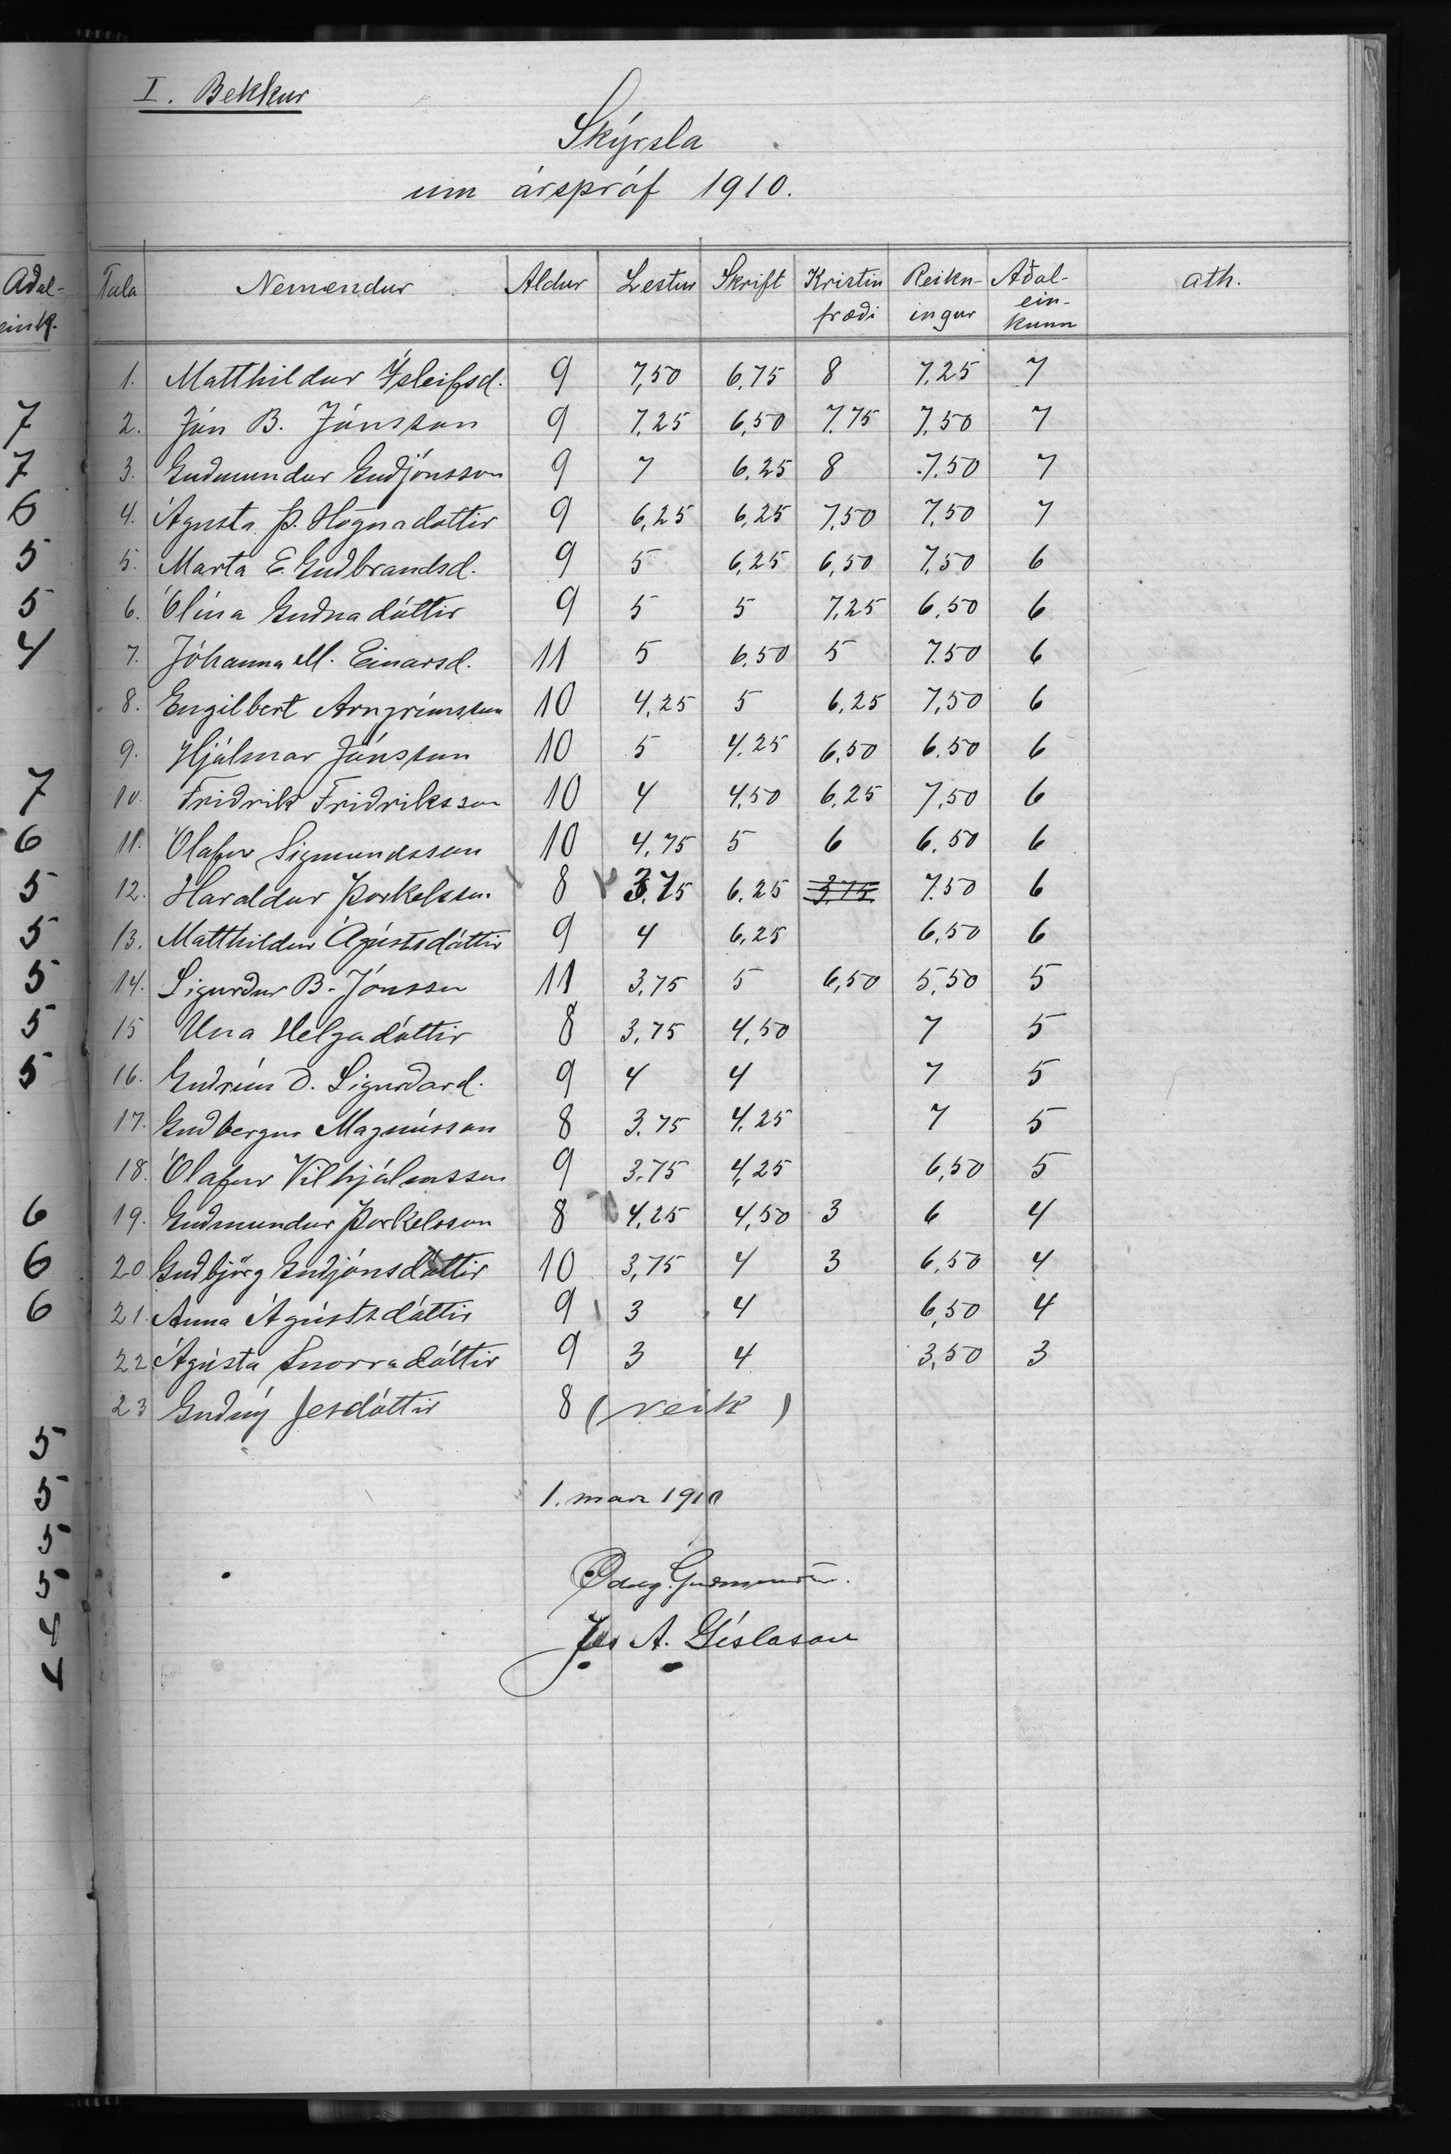 I. Bekkur
Skýrsla
um árspróf 1910.
Aðal-
eink.
Tala Nemendur Aldur Lestur Skrift Kristin fræði Reikn- ingur Aðal- ein- kunn ath.
1. Matthildur Ísleifsd. 9 7,50 6,75 8 7,25 7
2. Jón B. Jónsson 9 7,25 6,50 7,75 7,50 7
3. Guðmundur Guðjónsson 9 7 6,25 8 7,50 7
4. Ágústa Þ. Högnadóttir 9 6,25 6,25 7,50 7,50 7
5. Marta E. Guðbrandsd. 9 5 6,25 6,50 7,50 6
6. Ólína Guðnadóttir 9 5 5 7,25 6,50 6
7. Jóhanna M. Einarsd. 11 5 6,50 5 7,50 6
8. Engilbert Arngrímsson 10 4,25 5 6,25 7,50 6
9. Hjálmar Jónsson 10 5 4,25 6,50 6,50 6
10. Friðrik Friðriksson 10 4 4,50 6,25 7,50 6
11. Ólafur Sigmundsson 10 4,75 5 6 6,50 6
12. Haraldur Þorkelsson 8 3,75 6,25 3,75 7,50 6
13. Matthildur Ágústsdóttir 9 4 6,25 6,50 6
14. Sigurður B. Jónsson 11 3,75 5 6,50 5,50 5
15 Una Helgadóttir 8 3,75 4,50 7 5
16. Guðrún D. Sigurðard. 9 4 4 7 5
17. Guðbergur Magnússon 8 3,75 4,25 7 5
18. Ólafur Vilhjálmsson 9 3,75 4,25 6,50 5
19. Guðmundur Þorkelsson 8 4,25 4,50 3 6 4
20 Guðbjörg Guðjónsdóttir 10 3,75 4 3 6,50 4
21. Anna Ágústsdóttir 9 3 4 6,50 4
22 Ágústa Snorradóttir 9 3 4 3,50 3
23 Guðný Jesdóttir 8 (veik)
1. mars 1910
Oddg. Guðmundss.
Jes A. Gíslason
7
7
6
5
5
4
7
6
5
5
5
5
5
6
6
6
5
5
5
5
4
4